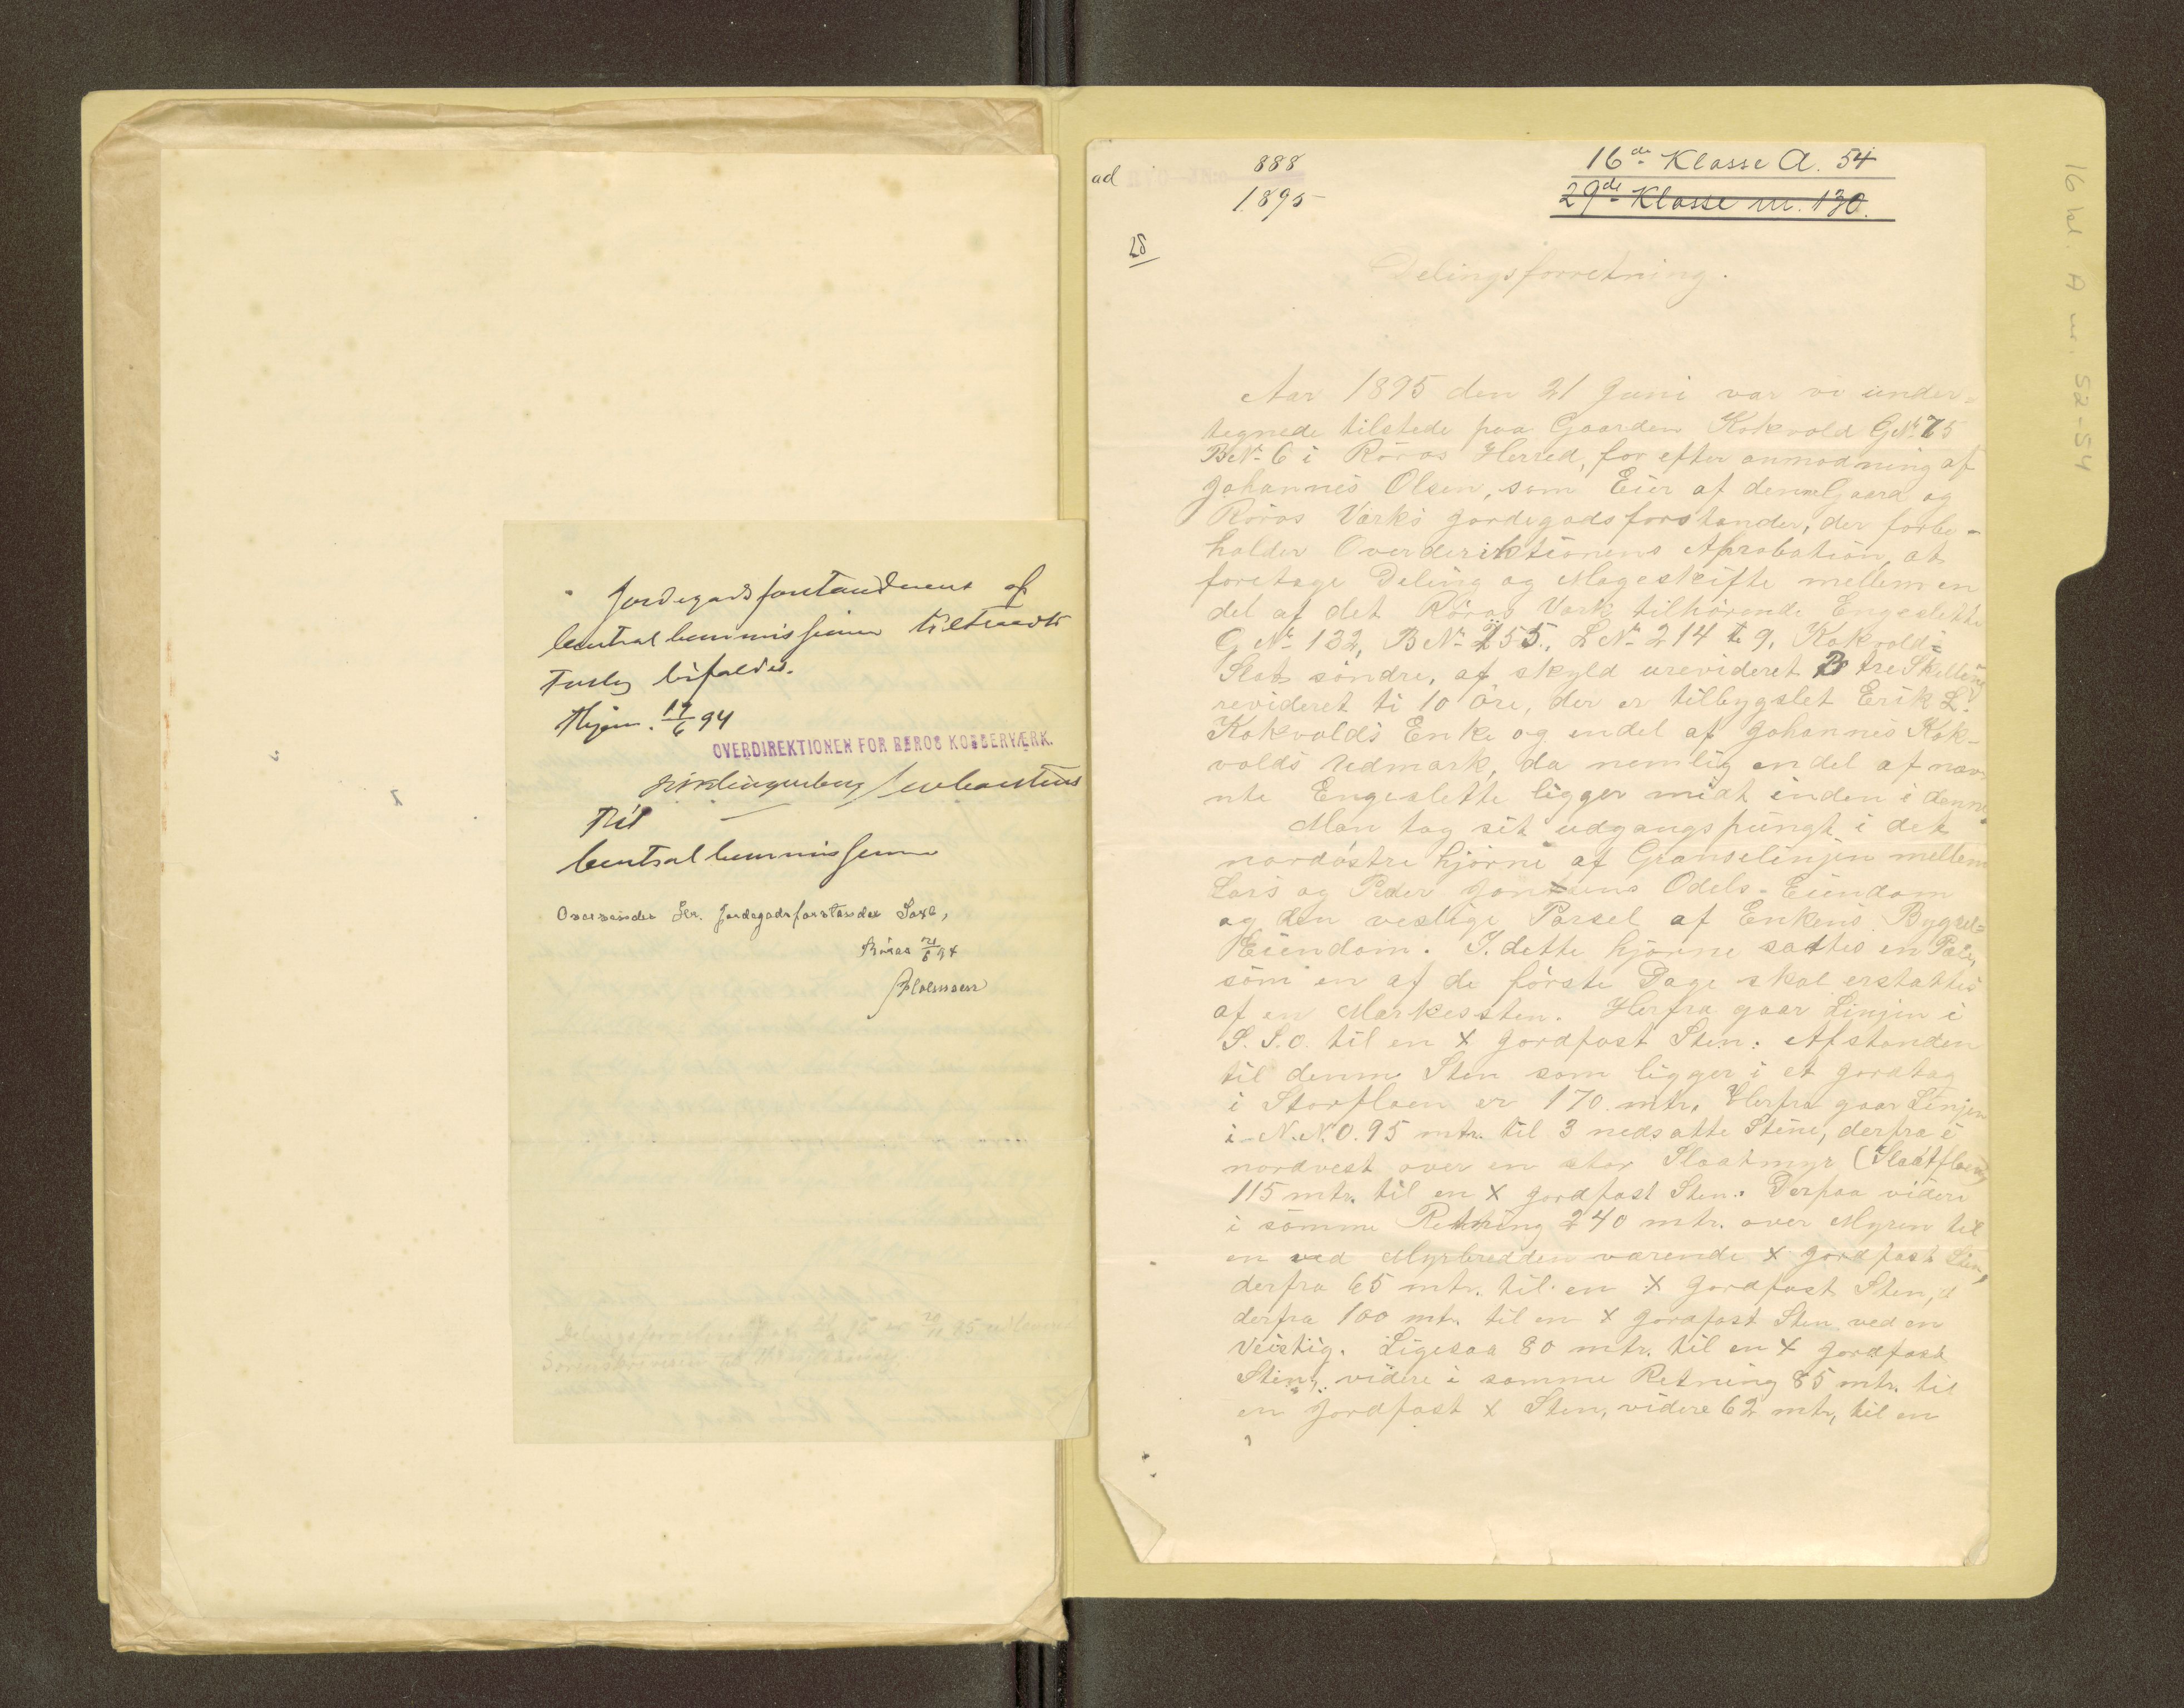 Jordegodsforstanderens af
Centralkommissionen tiltraadte
Forslag bifaldes.
Thjem. 17/6 94
OVERDIREKTIONEN FOR RØROS KOBBERVÆRK.
Til
Centralkommissionen
Oversendes Hr. Jordegodsforstander Saxe,
Röros 21/6 94
ad
888
1895
16de Klasse A. 54
29de Klasse nr. 130.
28
Delingsforretning.
Aar 1895 den 21 Juni var vi under=
tegnede tilstede paa Gaarden Kokvold GNr. 75
BNr. 6 i Röros Herred, for efter anmodning af
Johannes Olsen, som Eier af denne Gaard og
Röros Værks Jordegodsforstander, der forbe-
holder Overderiktionens Aprobation, at
foretage Deling og Mageskifte mellem en
del af det Röros Værk tilhörende Engeslette
G Nr. 132, B Nr. 155., L Nr. 214 k 9, Kokvold=
Slot söndre, af skyld urevideret tre Skilling
revideret ti 10 Öre, der er tilbygslet Erik L.
Kokvolds Enke og endel af Johannes Kok-
volds Udmark, da nemlig en del af næv
nte Engeslette ligger midt inden i denne.
Man tog sit udgangspungt i det
nordöstre hjörne af Grænselinjen mellem
Lars og Peder Jonsens Odels-Eiendom
og den vestlige Parsel af Enkens Bygsel=
Eiendom. I dette hjörne sattes en Pæle,
som en af de förste Dage skal erstattes
af en Markessten. Herfra gaar Linjen i
S. S.O. til en x Jordfast Sten. Afstanden
til denne Sten som ligger i et Jordtag
i Storfloen er 170 mtr. Herfra gaar Linjen
i N.N.O. 95 mtr. til 3 nedsatte Stene, derfra i
nordvest over en stor Slaatmyr (Slaatfloen)
115 mtr. til en x Jordfast Sten. Derpaa videre
i samme Retning 240 mtr. over Myren til
en ved Myrbredden værende x Jordfast Sten,
derfra 65 mtr. til en x Jordfast Sten,
derfra 100 mtr. til en x Jordfast Sten ved en
Veistig. Ligesaa 80 mtr. til en x Jordfast
Sten, videre i samme Retning 85 mtr. til
en Jordfast x Sten, videre 62 mtr, til en
16 kl. A nr. 52-54